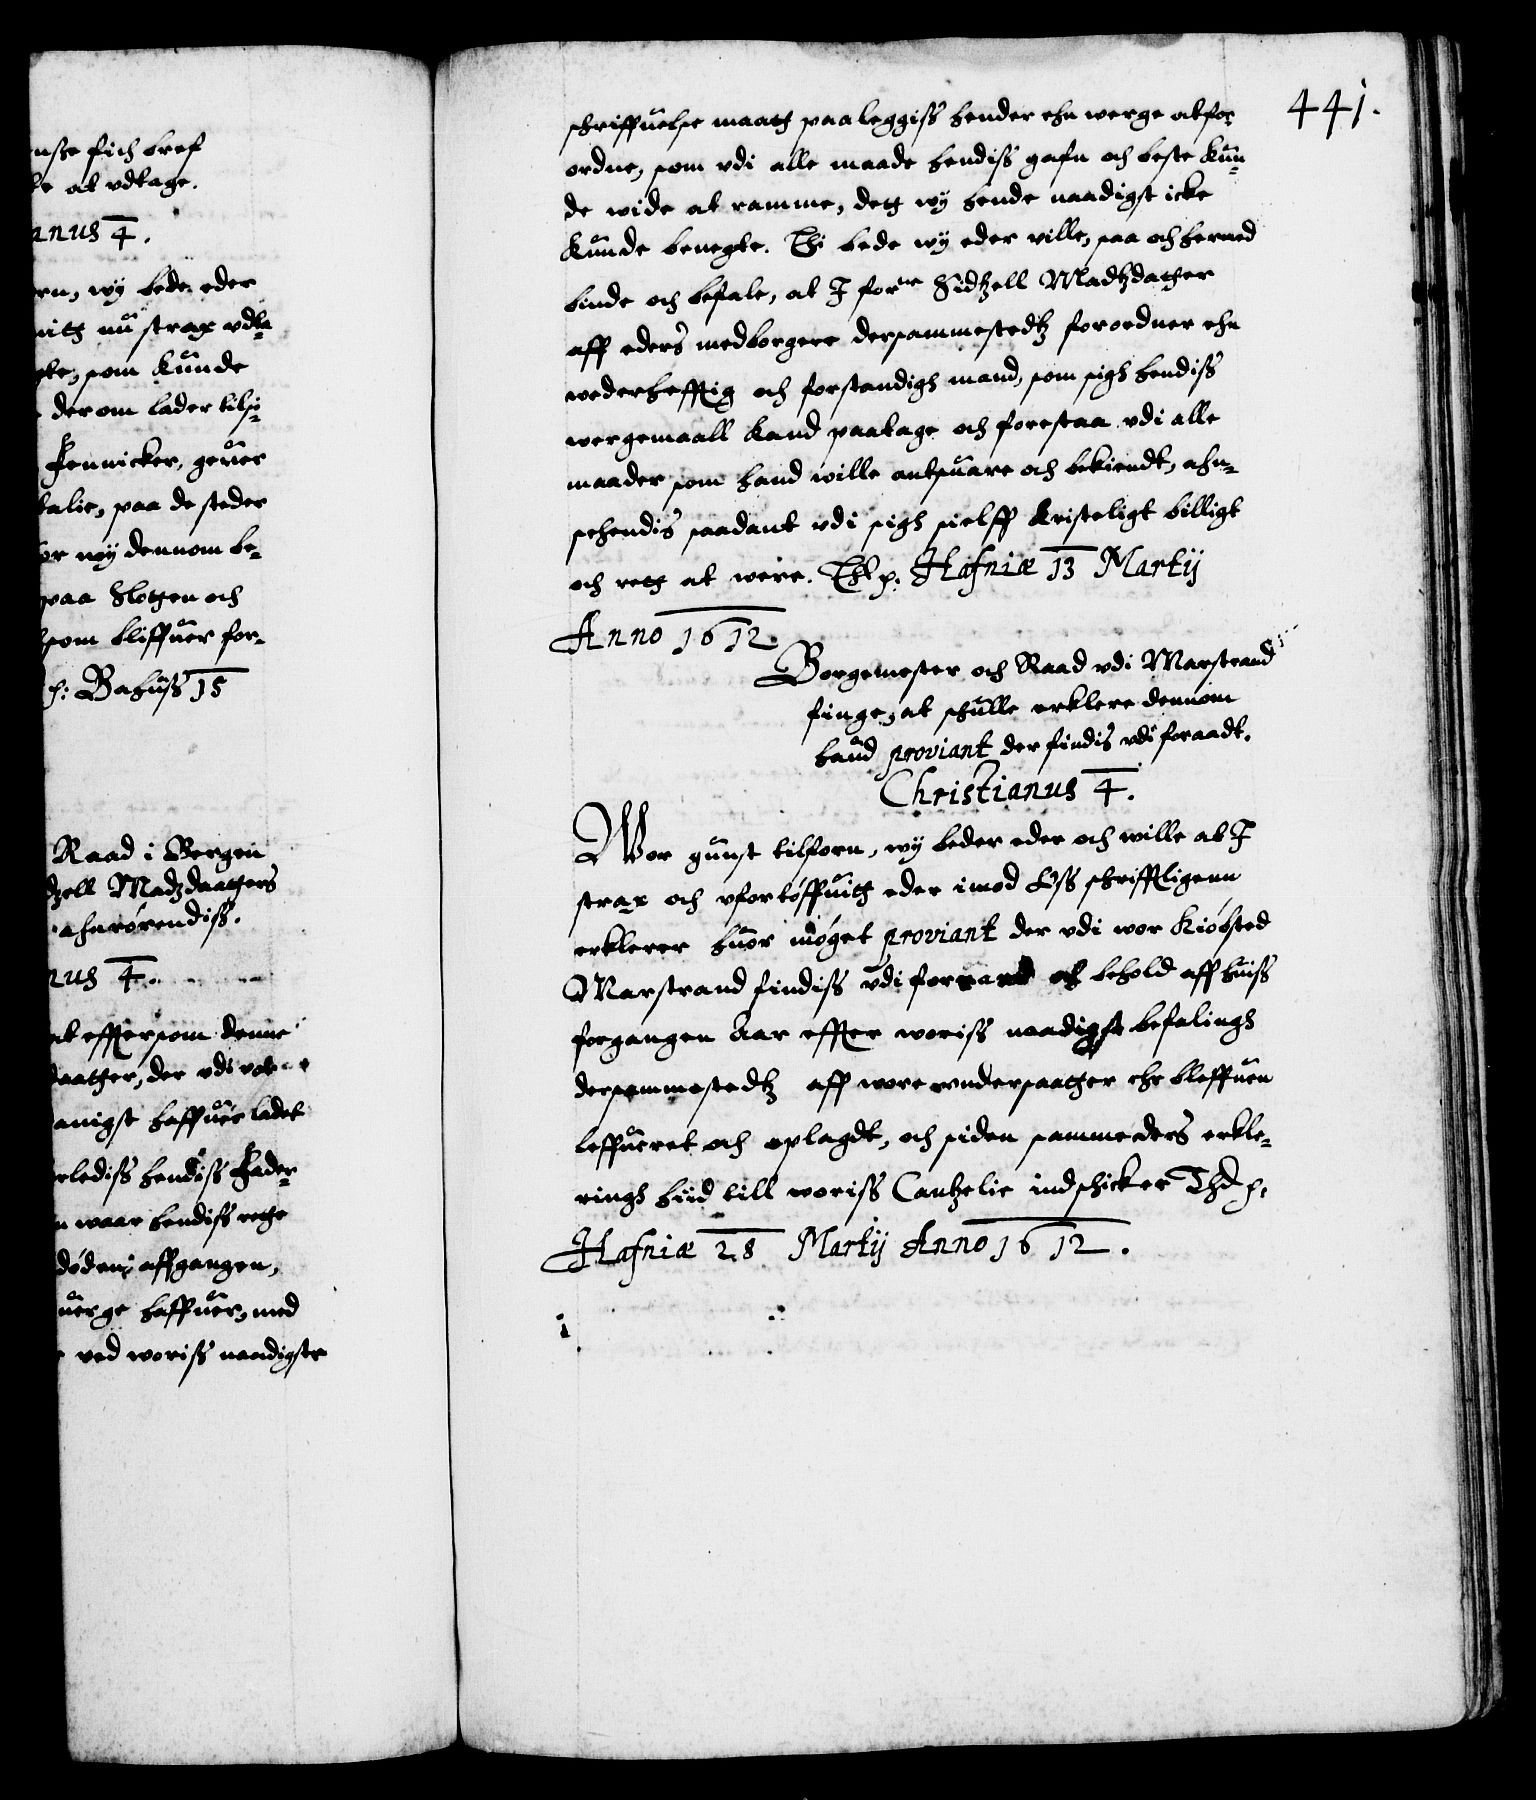 fich bref
at vdtage.
anus 4.
wÿ bede eder
nu strax vdta-
som Kunde
derom lader tilsi-
Fennicker, geuer
talie, paa de steder
wÿ dennom be-
paa Slotgen och
som bliffuer for-
Bahuss 15
Raad i Bergen
dzell Madzdaatgers
ahnrörendiss.
nus 4.
at effter som denne
daatger, der vdi
anigst haffuer ladet
hendiss Fader
waar hendiss rette
döden affgangen,
uerge haffuer, med
ved woriss naadigste
441.
schriffuelse maatg paaleggiss hender ehn werge at for-
ordne, som vdi alle maade hendiss gafn och beste kun-
de wide at ramme, detg wÿ hende naadigst icke
Kunde benegte. Thi bede wÿ eder ville, saa och hermed
binde och befale, at I forne Sidtzell Madtzdatger
aff eders medborgere dersammestedtz forordner ehn
wederhefftig och forstandigh mand, som sigh hendiss
wergemaall kand paatage och forestaa vdi alle
maader som hand wille antsuare och bekiendt, ahn-
sehendis saadant vdi sigh sielff Kristeligt billigt
och retg at were. Tht p. Hafniæ 13 Martÿ
Anno 1612.
Borgemester och Raad vdi Marstrand
finge, at schulle erklere dennom
huad proviant der findis vdi foraadt.
Christianus 4.
Wor gunst tilforn, wÿ beder eder och wille at I
strax och vfortöffuitg eder imod Oss schrifftligenn
erklerer huor möget proviant der vdi wor Kiöbsted
Marstrand findiss vdi forraad och behold aff huiss
forgangen Aar effter woriss naadigst befalingh
dersammestedtz aff wore vndersaatger ehr bleffuen
leffueret och oplagdt, och siden samme eders erkle-
ringh hiid till woriss Cantzelie indschicker Thd p.
Hafniæ 28 Martÿ Anno 1612.